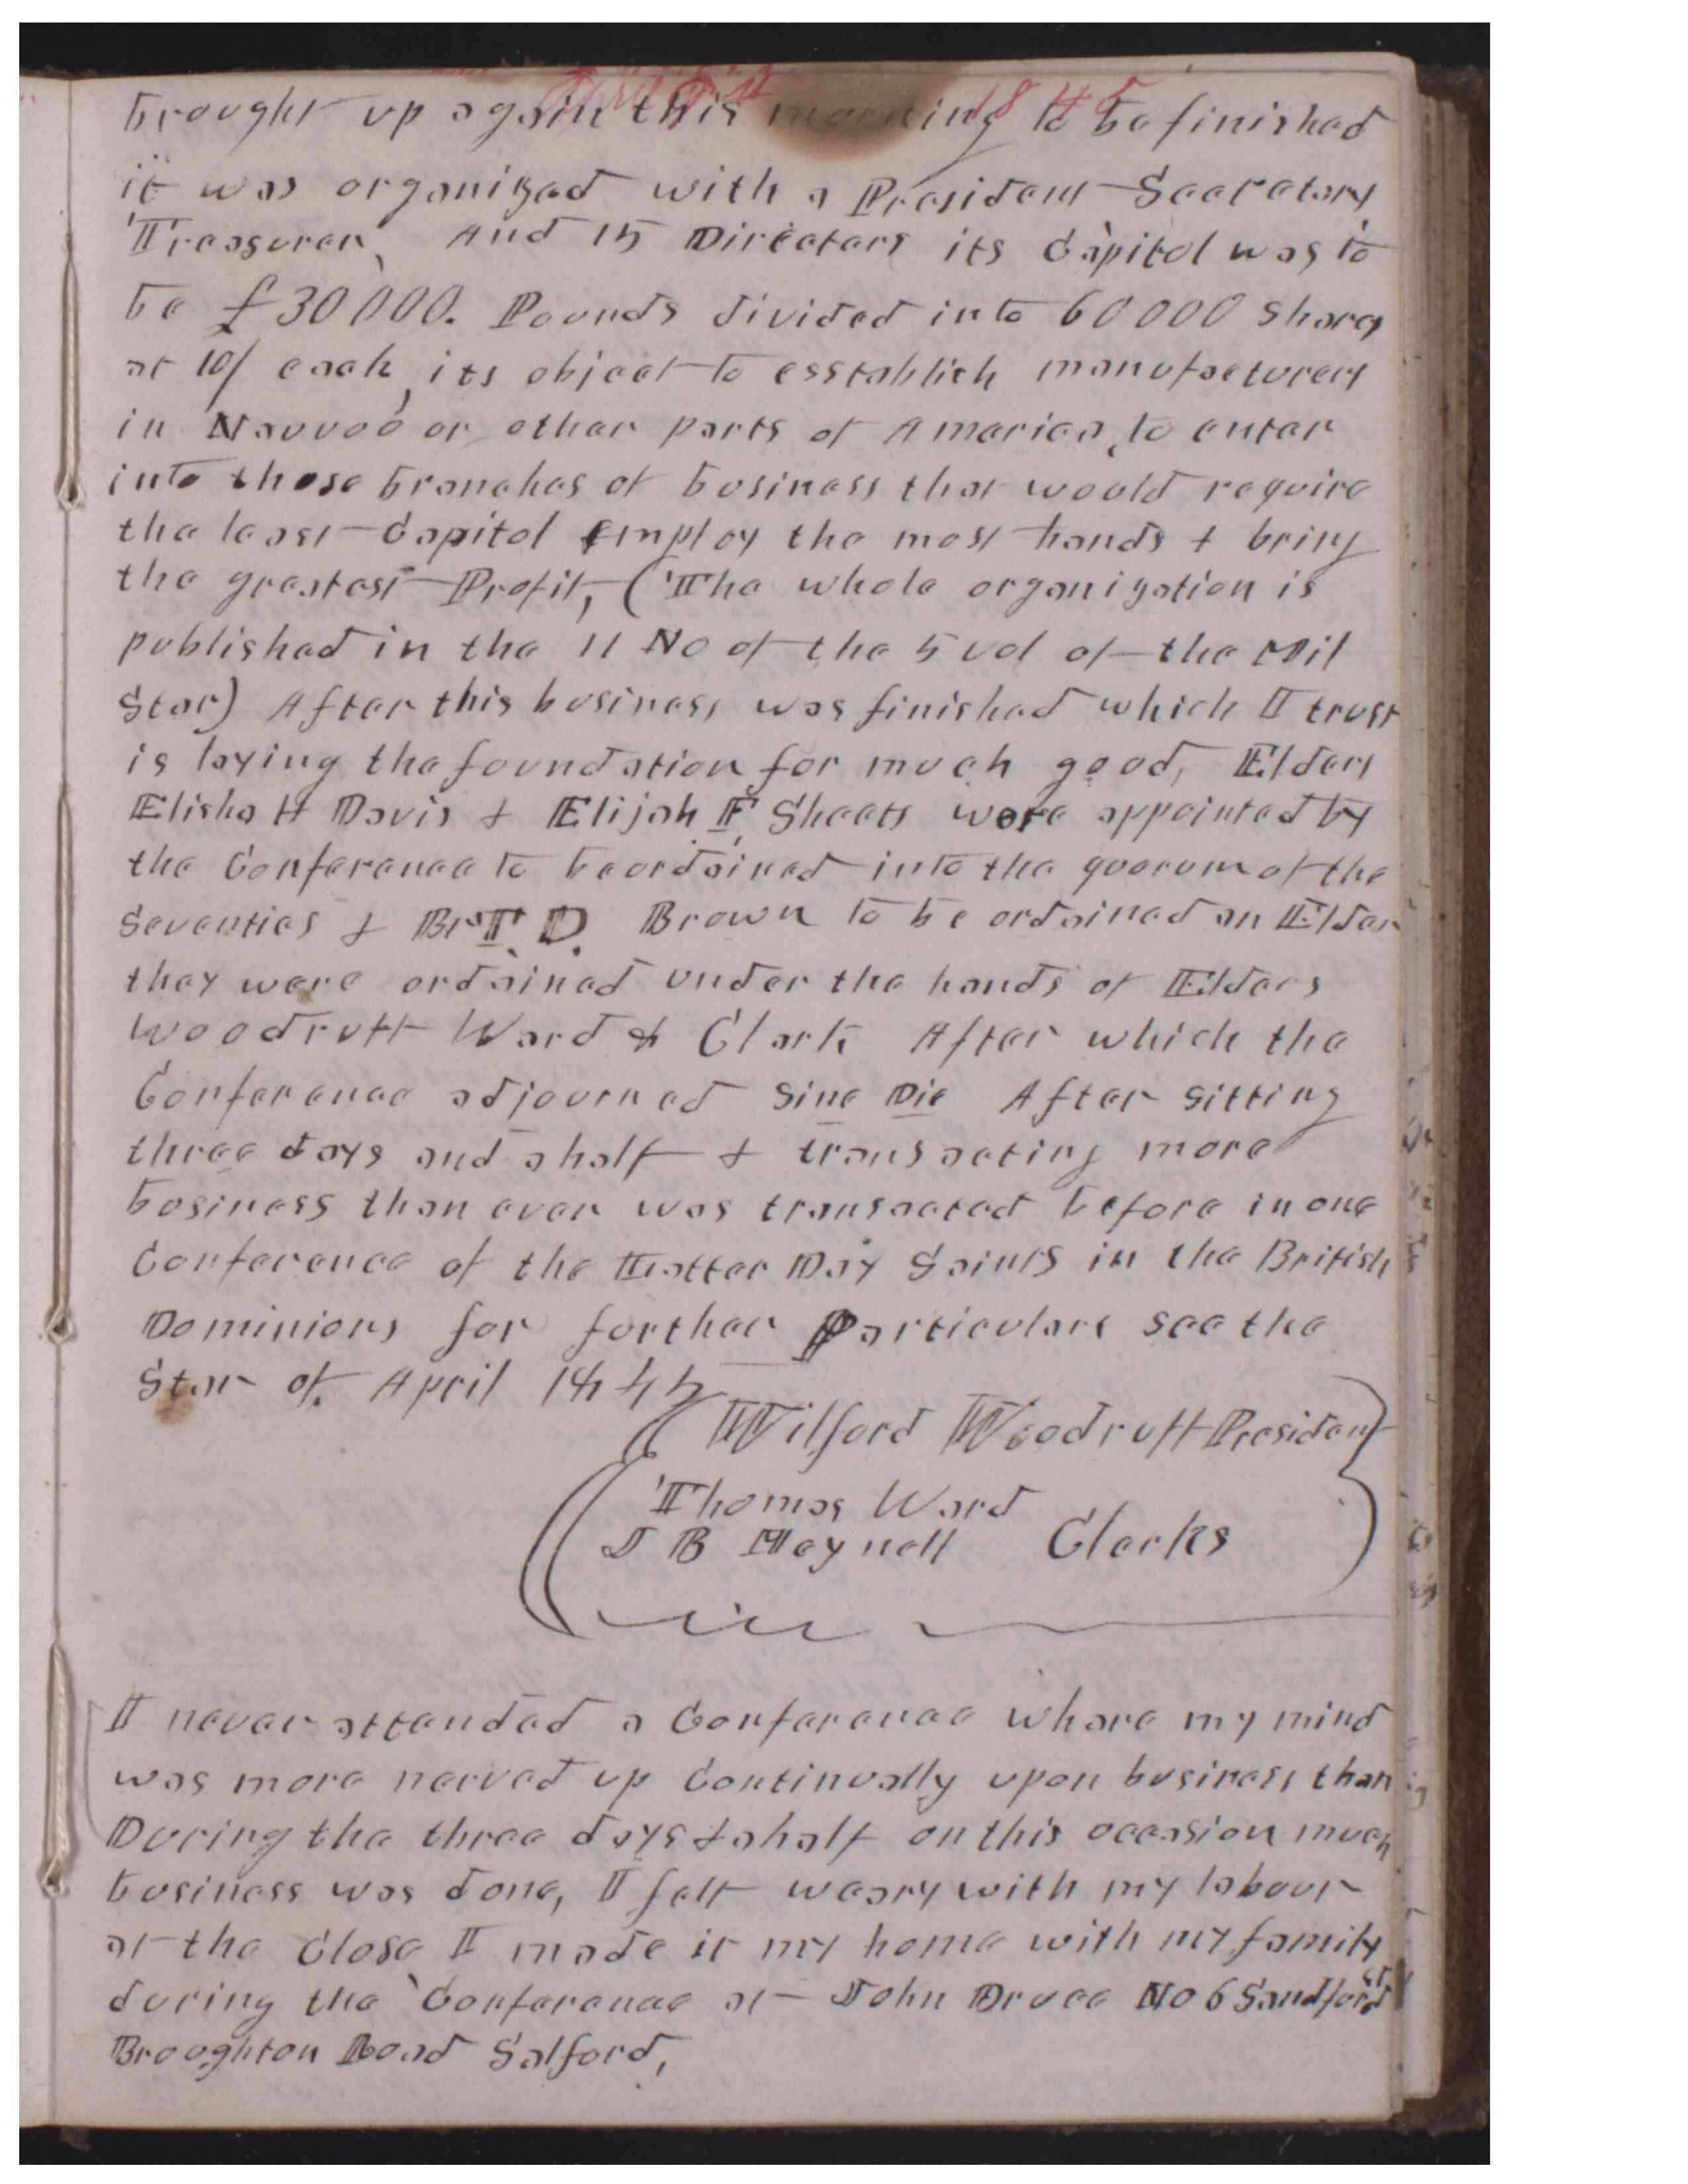 April 9th 1845
brought up again this morning to be finished
it was organized with a President Secretary
Treasurer, And 15 Directors its Capitol was to
be £30000. Pounds divided into 60000 Shares
at 10/ each, its object to esstablish manufacturers
in Nauvoo or other parts of America, to enter
into those branches of business that would require
the least Capitol Employ the most hands & bring
the greatest Profit, (The whole organization is
published in the 11 No of the 5 vol of the Mil
Star) After this business was finished which I trust
is laying the foundation for much good, Elders
Elisha H Davis & Elijah F, Sheets were appointed by
the Conference to be ordained into the quorum of the
Seventies & Br T. D. Brown to be ordained an Elder
they were ordained under the hands of Elders
Woodruff Ward & Clark After which the
Conference adjourned Sine Die After sitting
three days and a half & transacting more
business than ever was transacted before in one
Conference of the Latter Day Saints in the British
Dominions for further Particulars see the
Star of. April 1845
Wilford Woodruff President
Thomas Ward
J B Meynell Clerks
I never attended a Conference where my mind
was more nerved up Continually upon business than
During the three days & a half on this occasion much
business was done, I felt weary with my labour
at the Close I made it my home with my family
during the Conference at John Druce No 6 Sandford st
Broughton Road Salford,